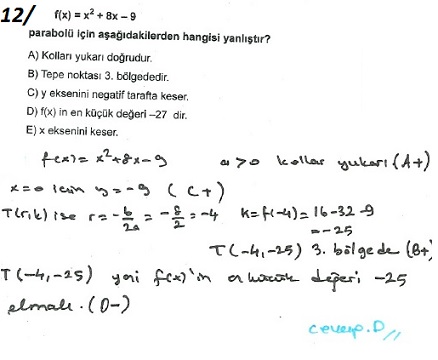 12/ f(x) = x² + 8x – 9
parabolü için aşağıdakilerden hangisi yanlıştır?
A) Kolları yukarı doğrudur.
B) Tepe noktası 3. bölgededir.
C) y eksenini negatif tarafta keser.
D) f(x) in en küçük değeri –27 dir.
E) x eksenini keser.
f(x) = x²+8x-9 a>0 kollar yukarı (A+)
x=0 için y=-9 (C+)
T(r,k) ise r = -b/2a = -8/2 = -4 k=f(-4)=16-32-9
=-25
T(-4,-25) 3. bölgede (B+)
T(-4,-25) yani f(x)'in en küçük değeri -25
olmalı. (D-)
cevap. D//